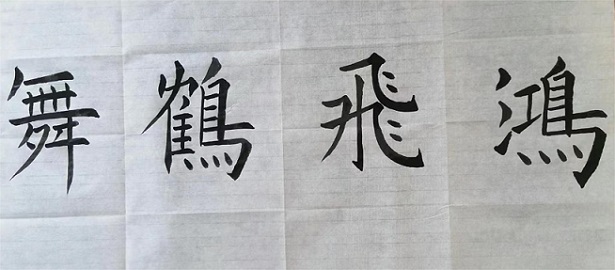 舞鶴飛鴻